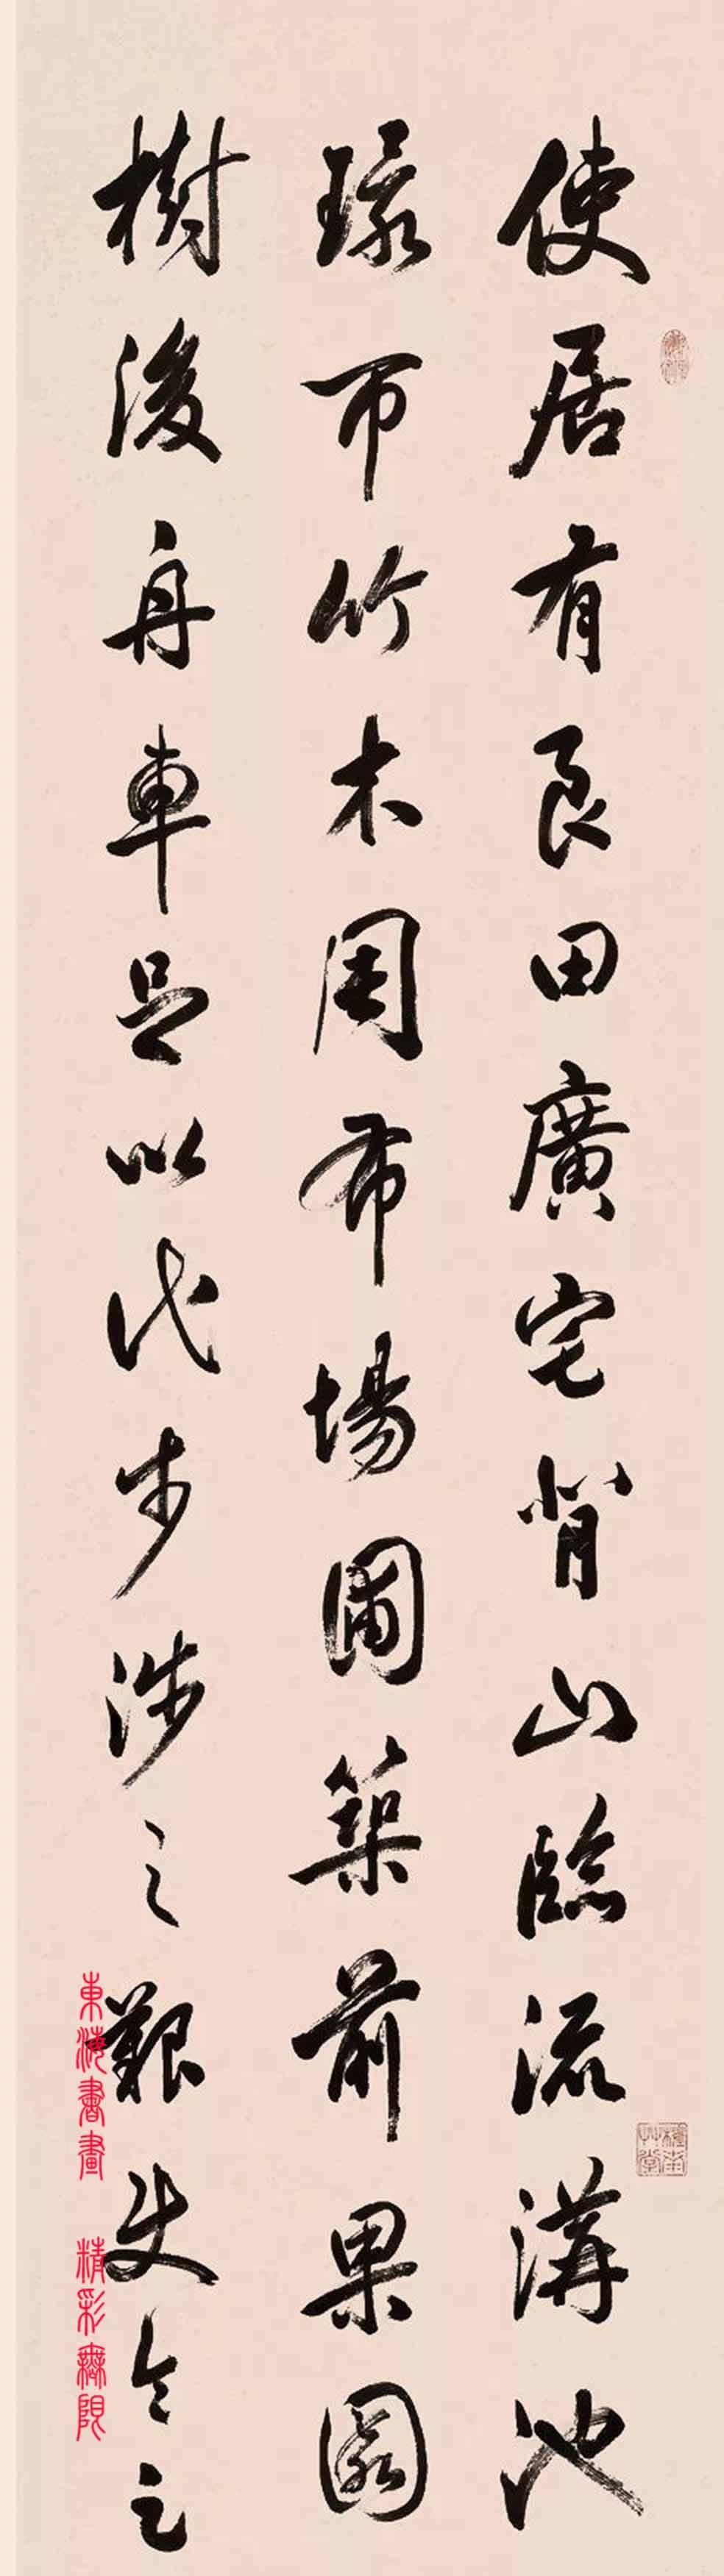 使居有良田廣宅背山臨流溝池
環帀竹木周布場圃築前果園
樹後舟車足以代步涉之艱使令之
東海書畫 精彩無限